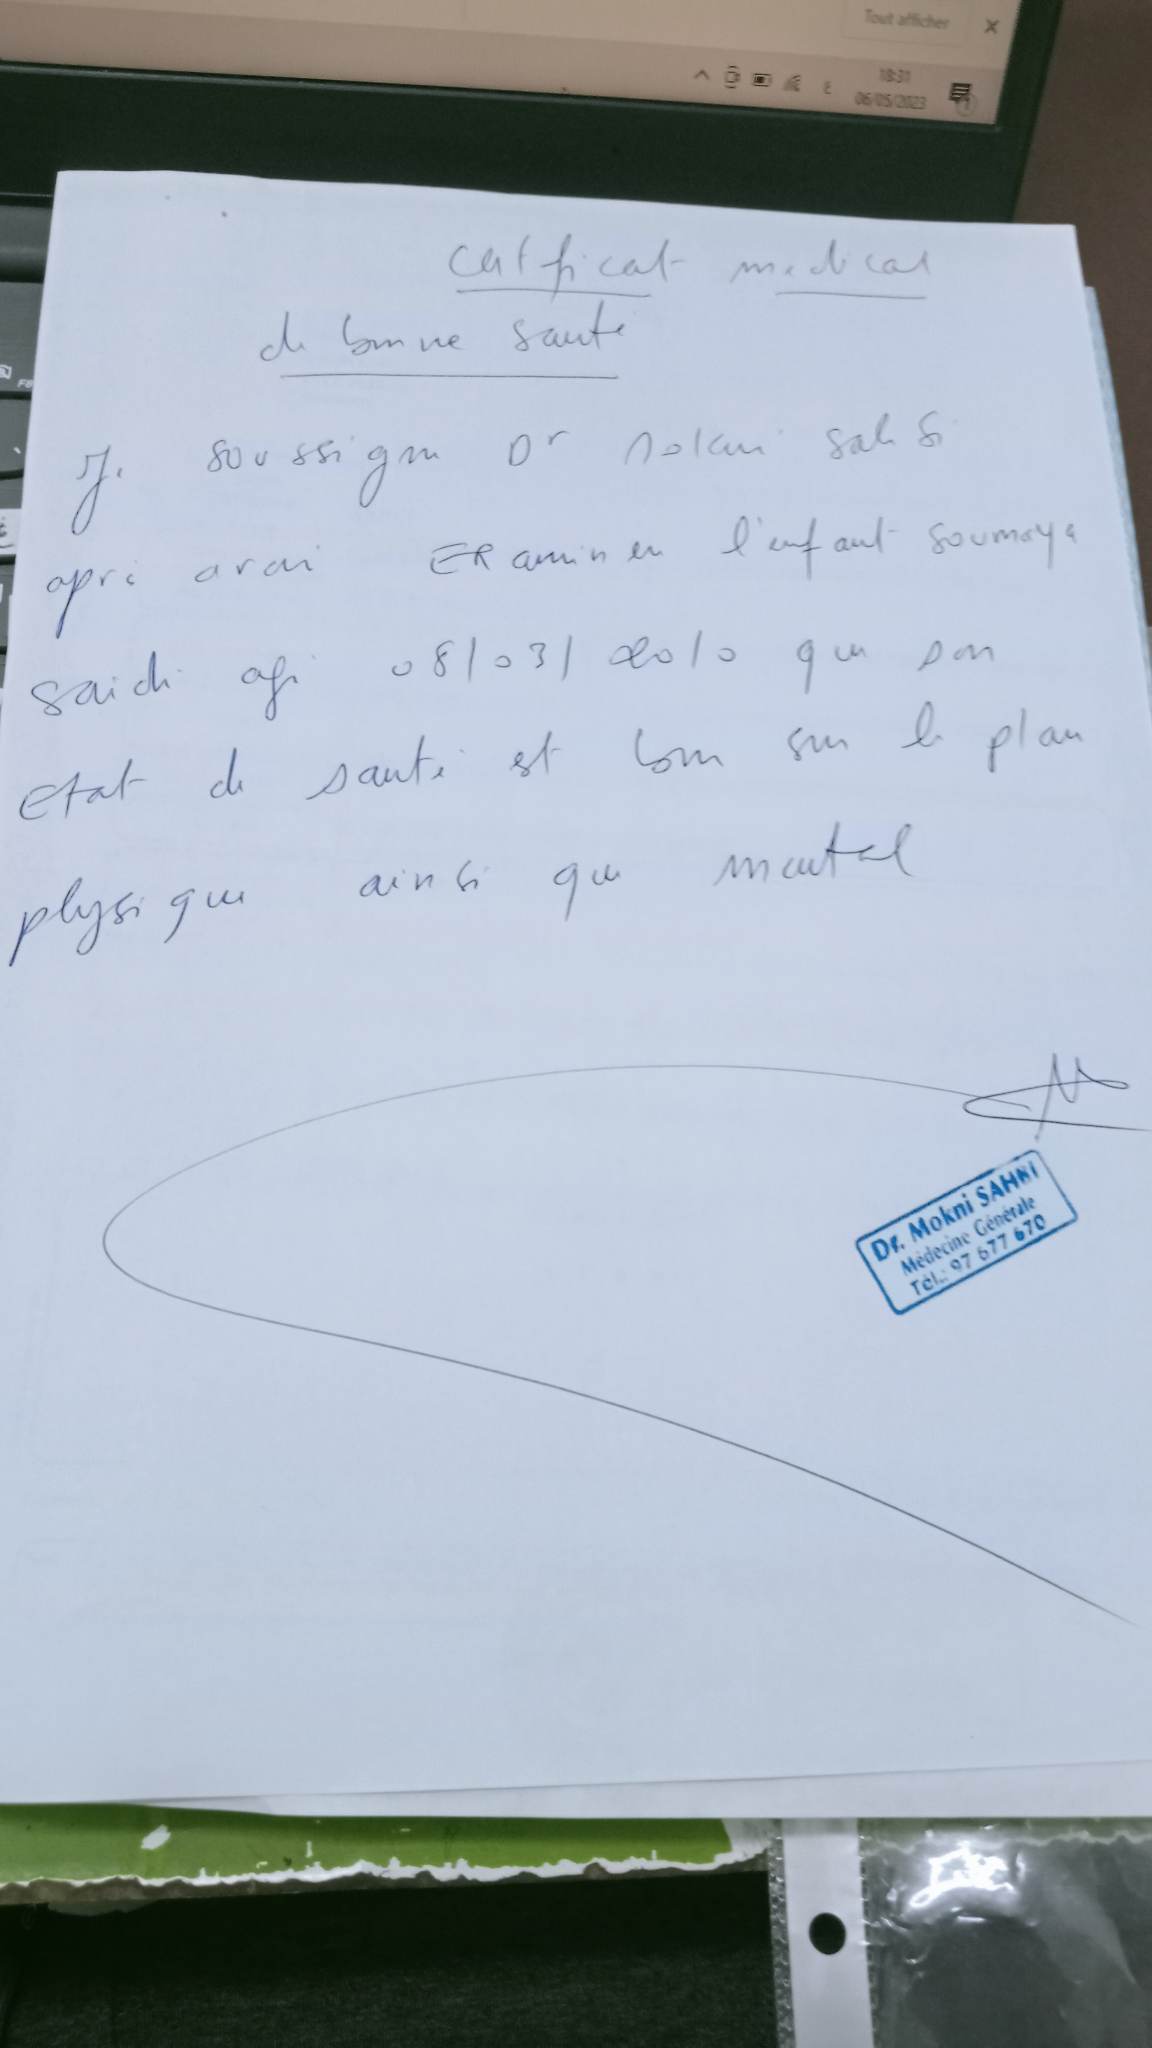 Tout afficher
18:31
06/05/2023
F8
Certificat medical
de bonne santé
Je soussigne Dr Mokni Sahbi
apri avoi Examiner l'enfant Soumaya
Saidi agé 08/03/2010 que son
Etat de santé est bon sur le plan
physique ainsi que mental
Dr. Mokni SAHBI
Médecine Générale
Tél.: 97 677 670